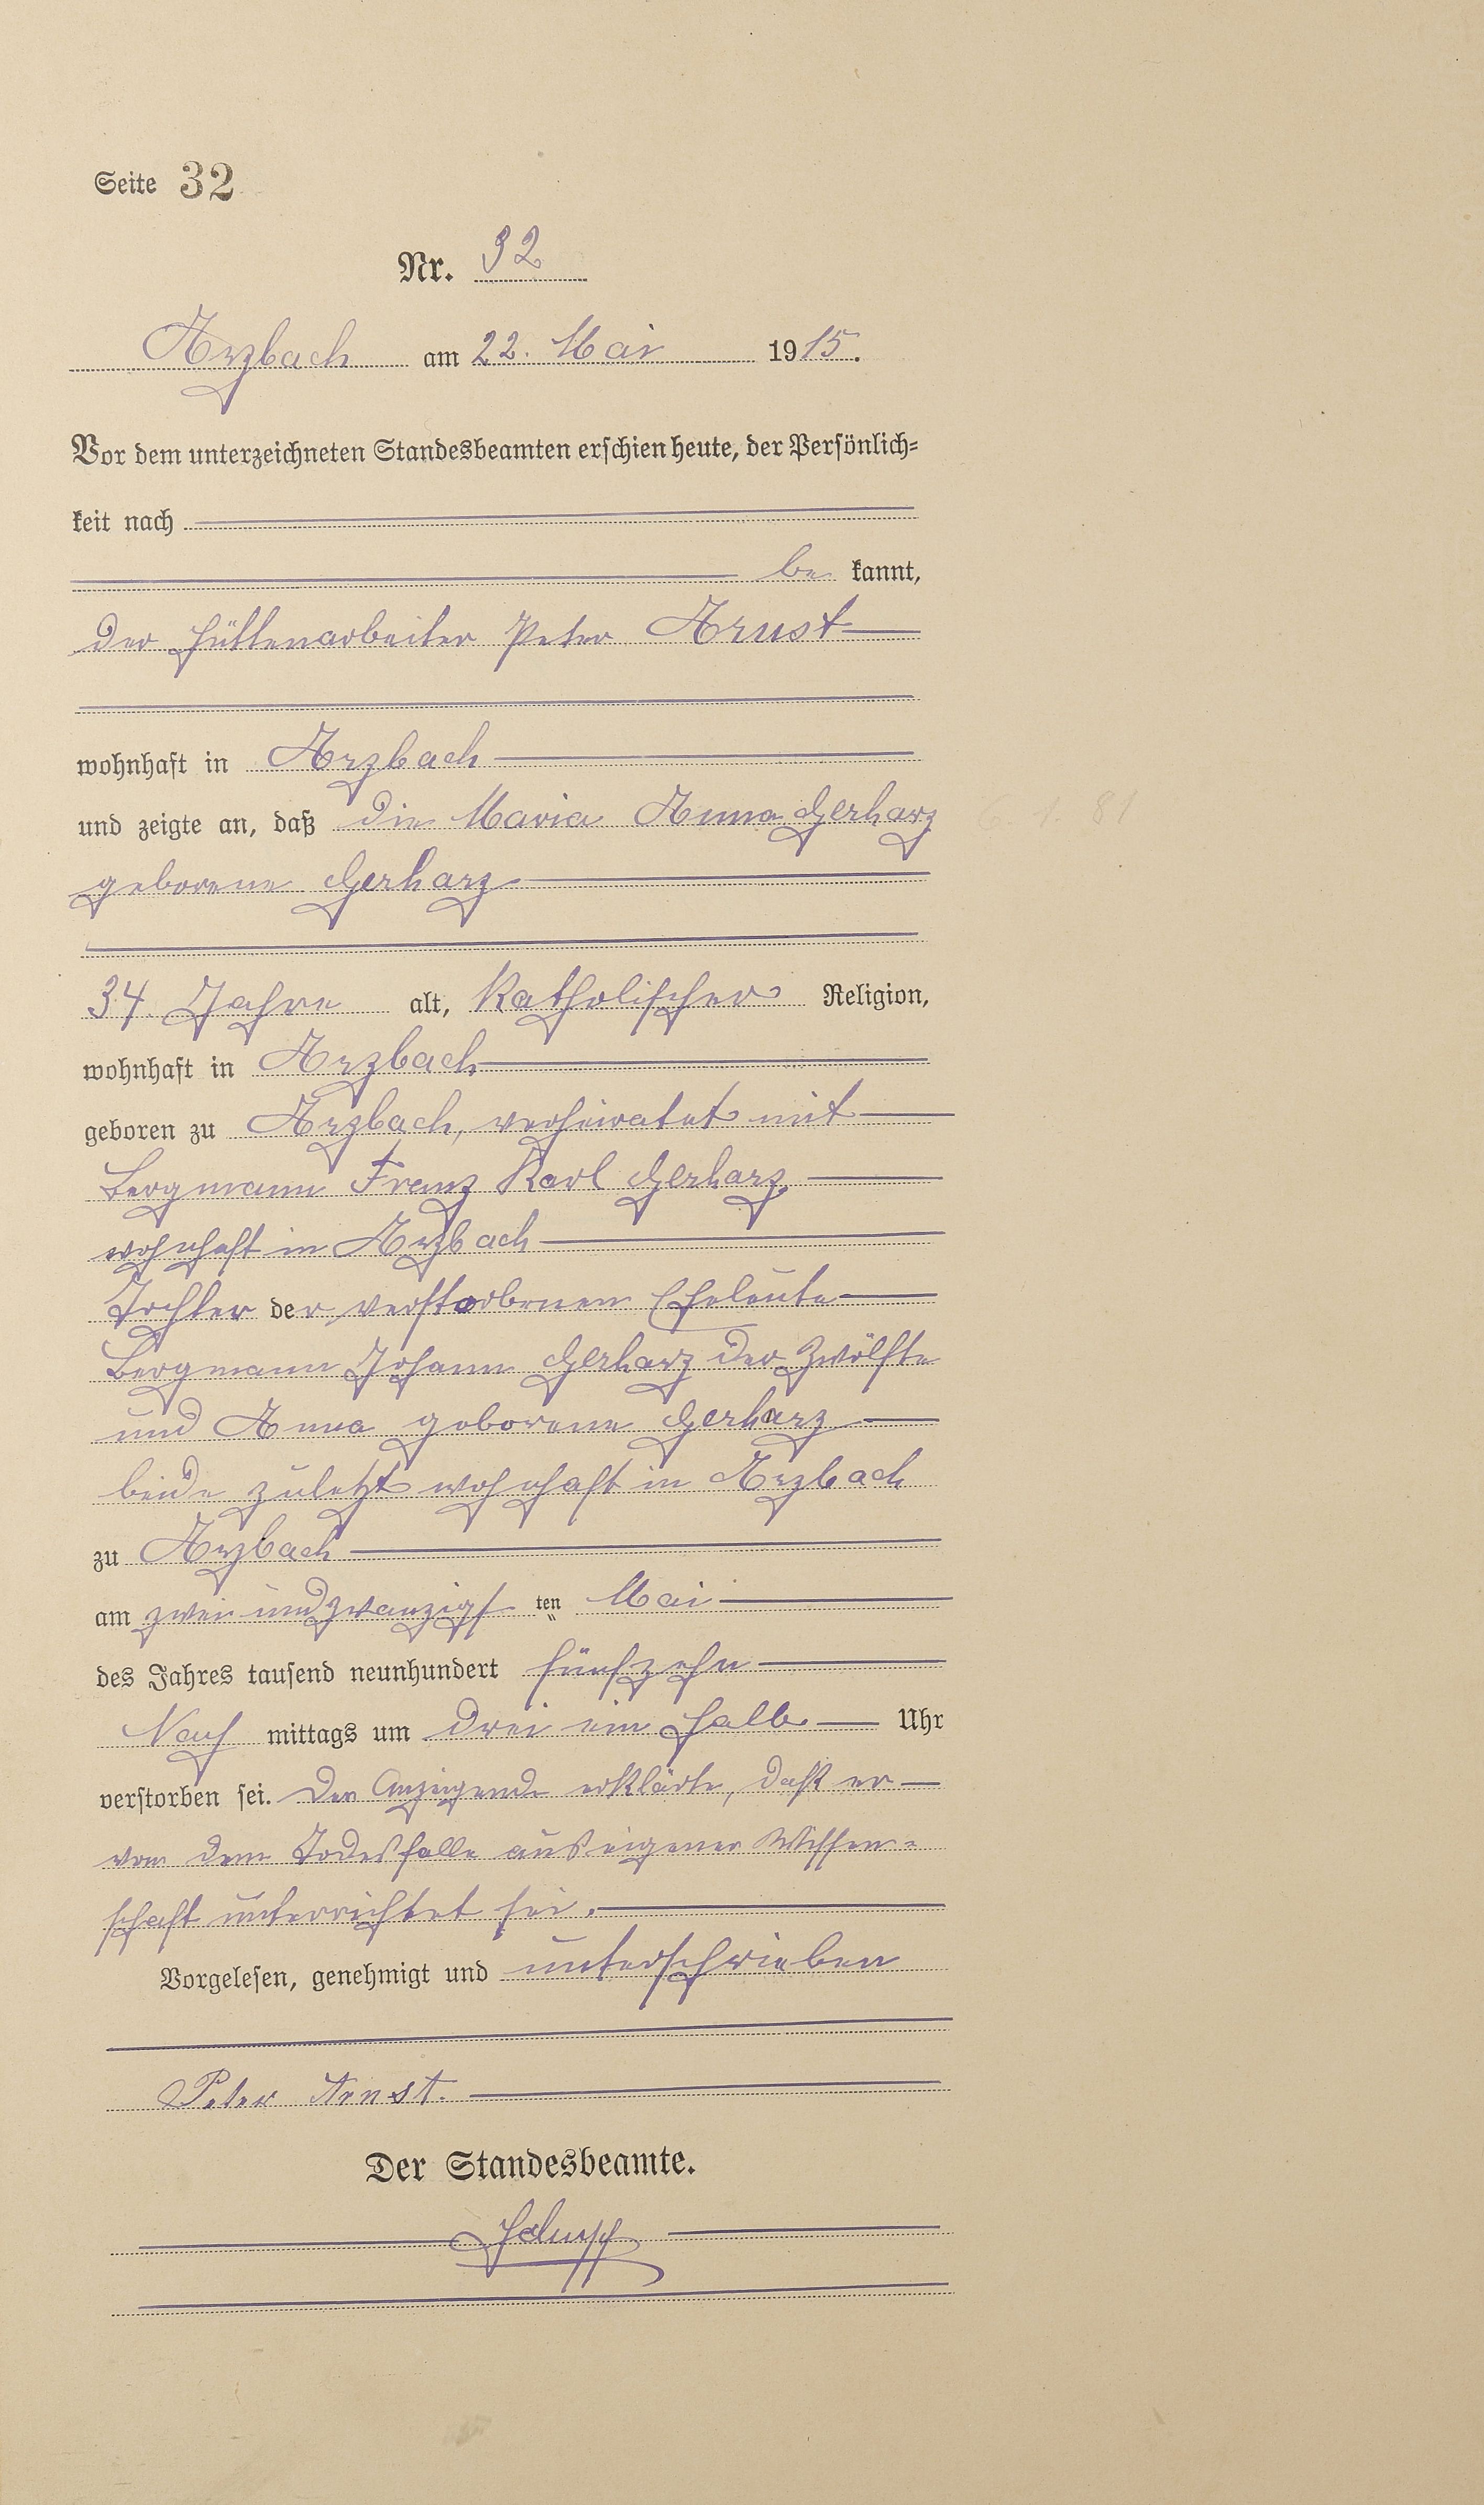 Seite 32
Nr. 32
Arzbach am 22. Mai 1915.
Vor dem unterzeichneten Standesbeamten erschien heute, der Persönlich-
keit nach
be kannt,
der Hüttenarbeiter Peter Arnst
wohnhaft in Arzbach
und zeigte an, daß die Maria Anna Gerharz 6. 1. 81
geborene Gerharz
34 Jahre alt, katholischer Religion,
wohnhaft in Arzbach
geboren zu Arzbach, verheiratet mit
Bergmann Franz Karl Gerharz,
wohnhaft in Arzbach
Tochter der verstorbenen Eheleute
Bergmann Johann Gerharz der Zwölfte
und Anna geborene Gerharz
beide zuletzt wohnhaft in Arzbach
zu Arzbach
am zwei und zwanzigs ten Mai
des Jahres tausend neunhundert fünfzehn
Nach mittags um drei ein halb Uhr
verstorben sei. Der Anzeigende erklärte, daß er
von dem Todesfalle aus eigener Wissen-
schaft unterrichtet sei.
Vorgelesen, genehmigt und unterschrieben
Peter Arnst.
Der Standesbeamte.